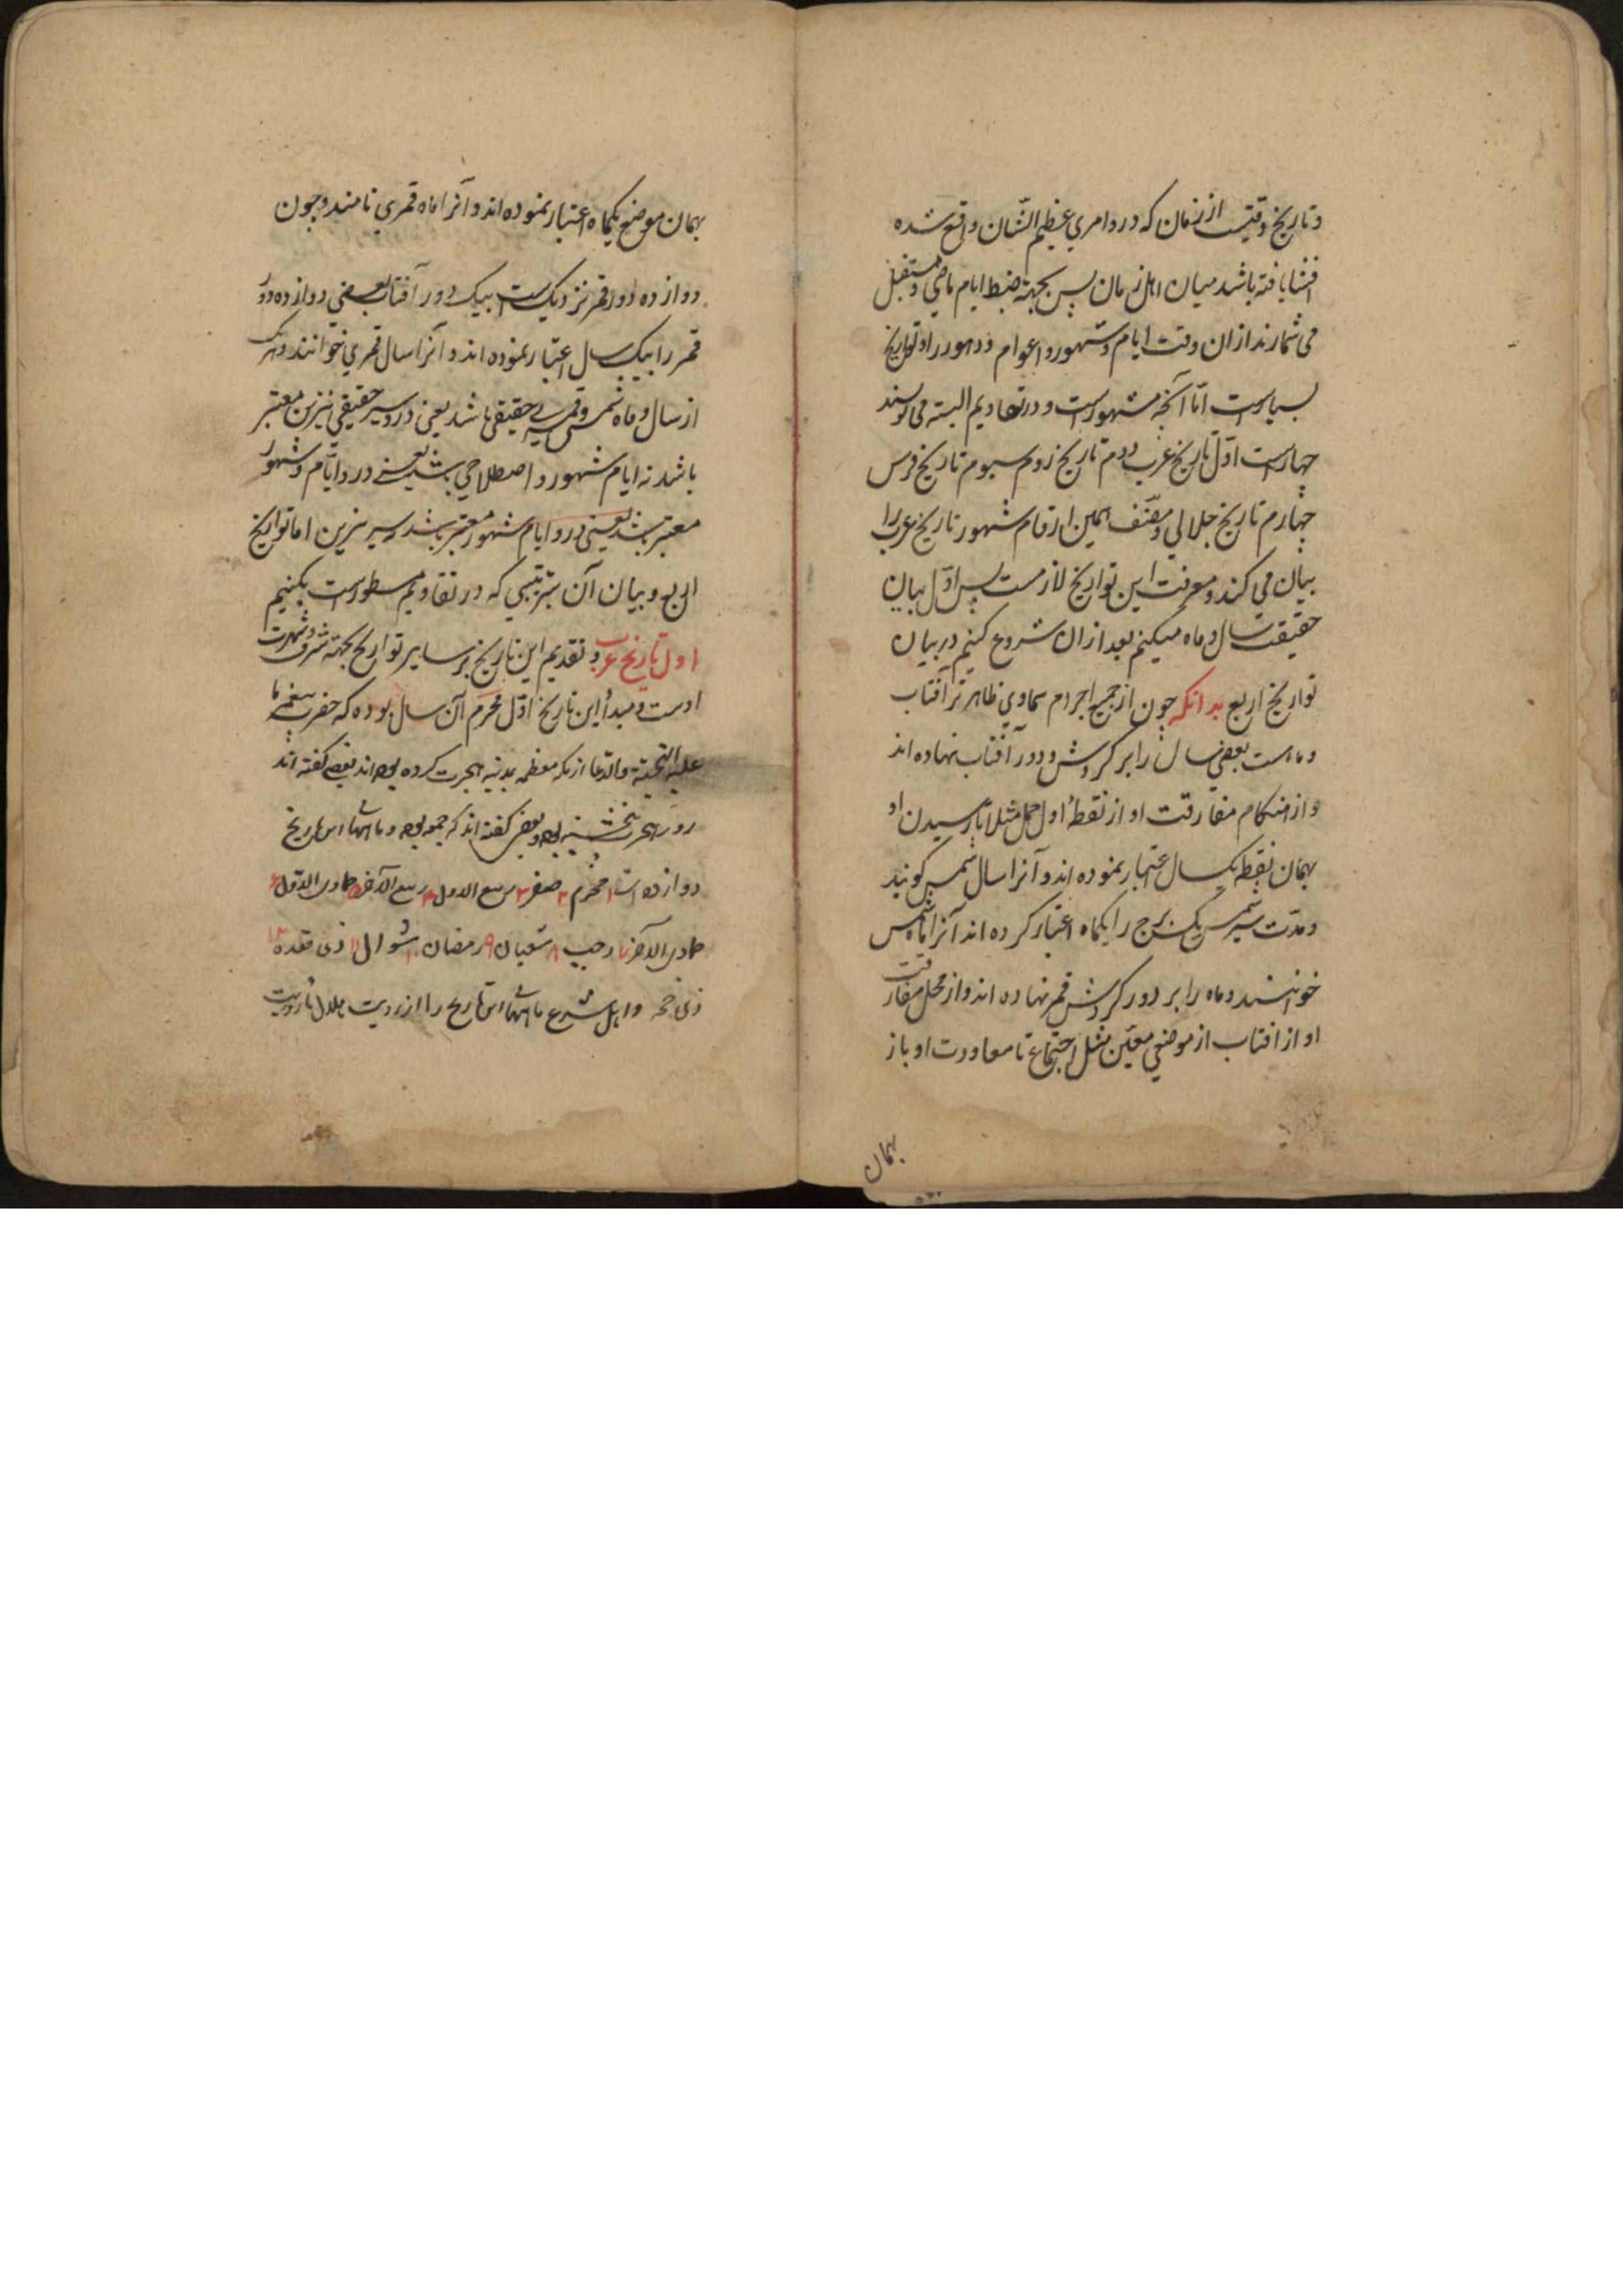 و تاریخ وقتیست از زمان که درو امری عظیم الشّان واقع شده
افشا یافته باشد میان اهل زمان پس بجهة ضبط ایام ماضی و مستقبل
می شمارند ازان وقت ایام و شهور و اعوام و دهور را و تواریخ
بسیارست امّا آنچه مشهورست و در تقاویم البته می نویسند
چهارست اوّل تاریخ عرب دوم تاریخ روم سیوم تاریخ فرس
چهارم تاریخ جلالی و مصنّف همین ارقام شهور تاریخ عرب را
بیان می کند و معرفت این تواریخ لازمست پس اوّل بیان
حقیقت سال و ماه میکنیم بعد ازان شروع کنیم در بیان
تواریخ اربع بدانکه چون از جمیع اجرام سماوی ظاهرتر آفتاب
و ماهست بعضی سال را بر کردش و دور آفتاب نهاده اند
و از هنکام مفارقت او از نقطهٔ اول حمل مثلا تا رسیدن او
بهمان نقطه یکسال اعتبار نموده اند و آنرا سال شمسی کویند
و مدّت سیر شمس یک برج را یکماه اعتبار کرده اند آنرا ماه شمسی
خوانند و ماه را بر دور کردش قمر نهاده اند و از محل مفارقت
او از افتاب از موضعی معیّن مثل اجتماع تا معاودت او باز
بهمان
بهمان موضع یکماه اعتبار نموده اند و آنرا ماه قمری نامند و چون
دوازده دور قمر نزدیکست بیک دور آفتاب بعضی دوازده دور
قمر را بیک سال اعتبار نموده اند و آنرا سال قمری خوانند و هریک
از سال و ماه شمسی و قمری حقیقی باشد یعنی درو سیر حقیقی نیّرین معتبر
باشد نه ایام شهور و اصطلاحی باشد یعنی درو ایّام و شهور
معتبر باشد یعنی درو ایام شهور معتبر باشد نه سیر نیرین اما تواریخ
اربع و بیان آن بترتیبی که در تقاویم مسطورست بکنیم
اول تاریخ عرب و تقدیم این تاریخ بر سایر تواریخ بجهة شرف و شهرت
اوست و مبدأ این تاریخ اوّل محرم آن سال بوده که حضرت پیغمبر ما
علیه التحیّة والدّعا از مکه معظمه بمدینه هجرت کرده بوده اند بعضی کفته اند
روز هجرت پنجشنبه بوده و بعضی کفته اند که جمعه بوده و ماههاء این تاریخ
دوازده است ۱ محرم ۲ صفر ۳ ربیع الاول ۴ ربیع الآخر ۵ جمادی الاول ۶
جمادی الآخر ۷ رجب ۸ شعبان ۹ رمضان ۱۰ شوال ۱۱ ذی قعده ۱۲
ذی حجه و اهل شرع ماههاء این تاریخ را از رویت هلال تا رویت